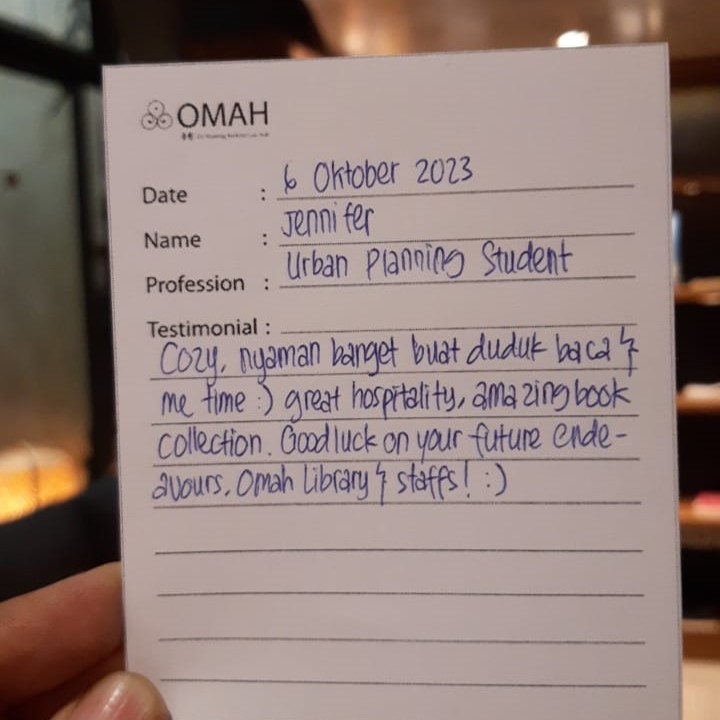 OMAH
Date : 6 Oktober 2023
Name : Jennifer
Profession : Urban Planning Student
Testimonial :
Cozy, nyaman banget buat duduk baca &
me time :) great hospitality, amazing book
collection. Good luck on your future ende-
avours, Omah Library & staffs! :)